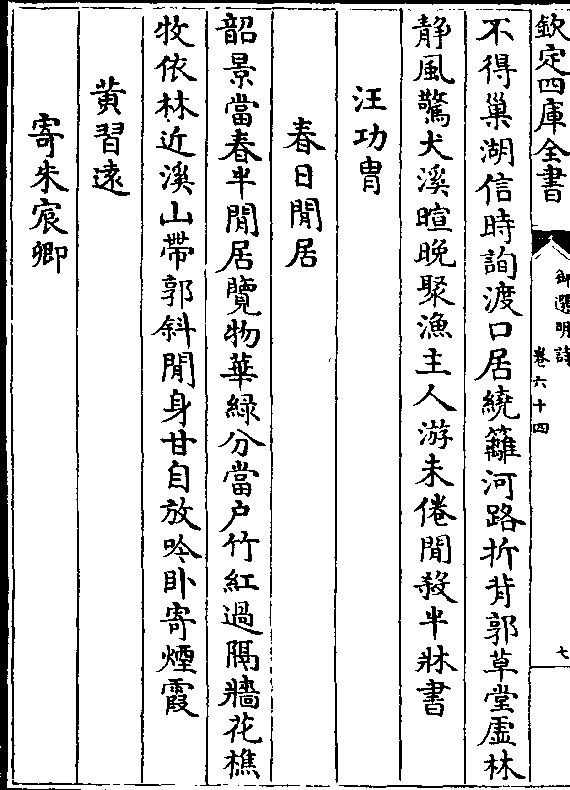 欽定四庫全書
御選明詩
卷六十四
七
不得巢湖信時詢渡口居繞籬河路折背郭草堂虛林
静風驚犬溪暄晚聚漁主人游未倦閒殺半牀書
汪功胄
春日閒居
韶景當春半閒居覽物華緑分當户竹紅過隔牆花樵
牧依林近溪山帶郭斜閒身甘自放吟卧寄煙霞
黄習遠
寄朱宸卿